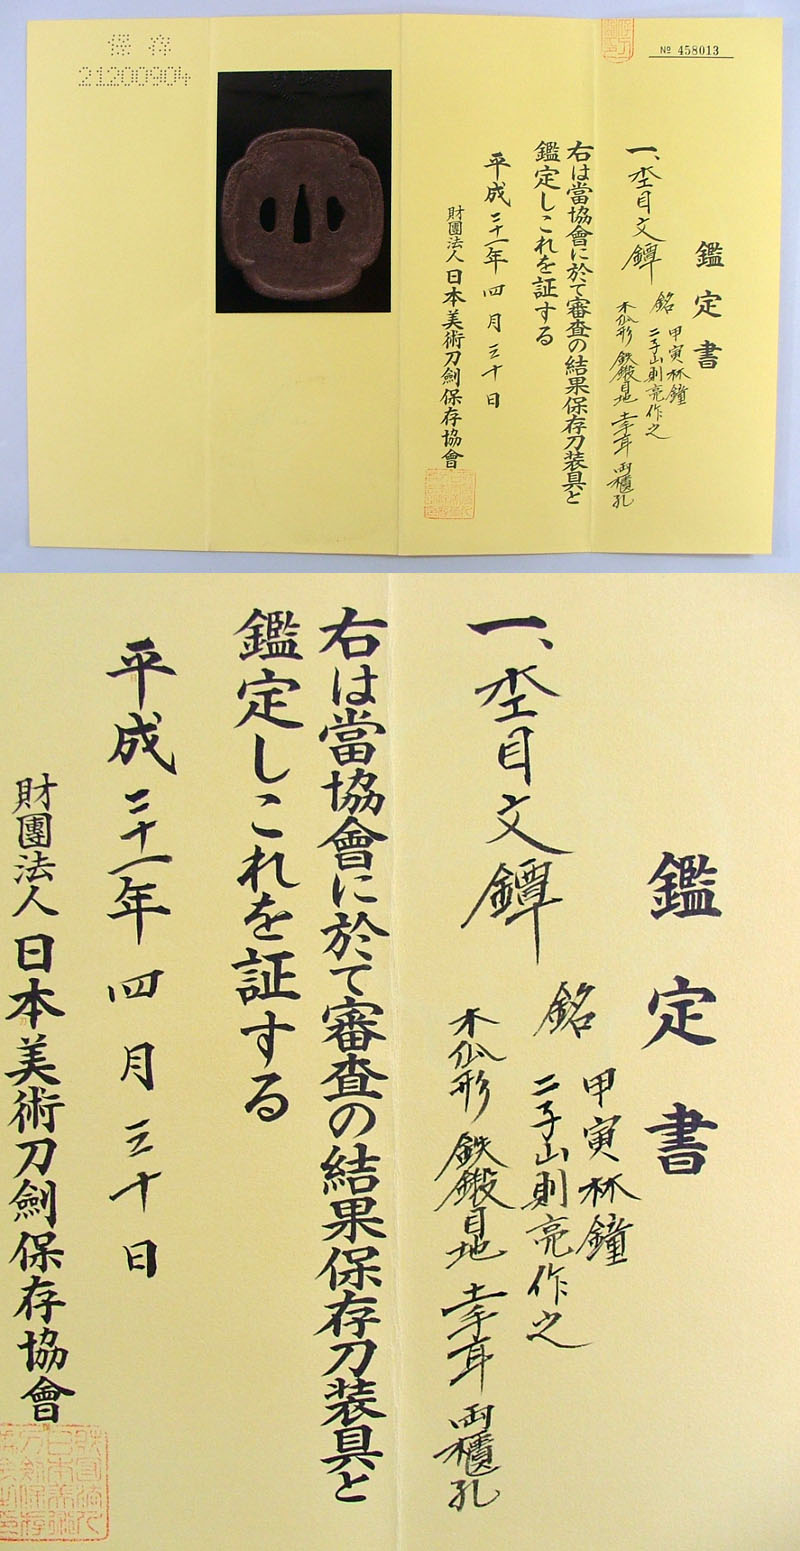 保存
21200904
№ 458013
鑑定書
一、杢目文鐔
銘 甲寅林鐘
二子山則亮作之
木瓜形 鉄鍛目地 土手耳 両櫃孔
右は當協會に於て審査の結果保存刀装具と
鑑定しこれを証する
平成二十一年四月三十日
財團法人日本美術刀劍保存協會
鑑定書
一、杢目文鐔
銘 甲寅林鐘
二子山則亮作之
木瓜形 鉄鍛目地 土手耳 両櫃孔
右は當協會に於て審査の結果保存刀装具と
鑑定しこれを証する
平成二十一年四月三十日
財團法人日本美術刀劍保存協會